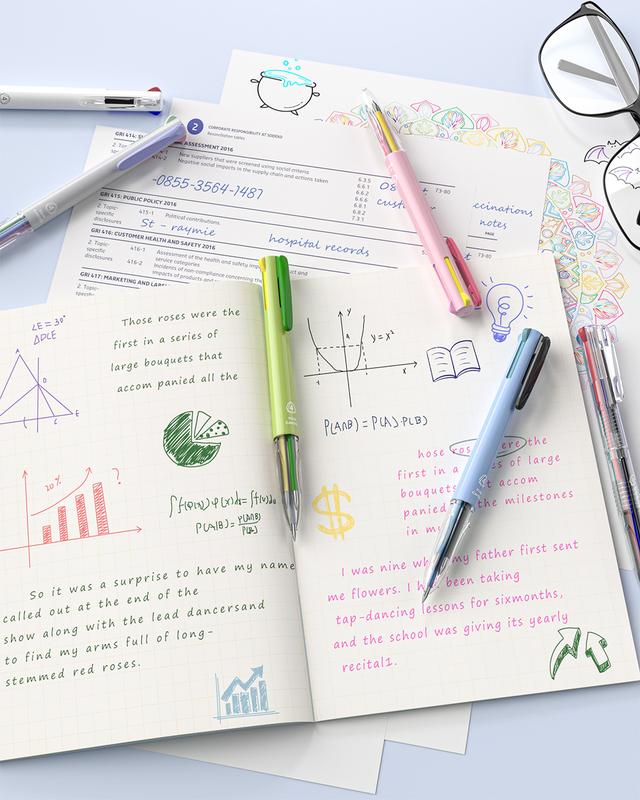 2
CORPORATE RESPONSIBILITY AT SODEXO
Reconciliation tables
ASSESSMENT 2016
414-2
New suppliers that were screened using social criteria
Negative social impacts in the supply chain and actions taken
-0855-3564-7487
6.3.5
6.6.1
6.6.2
6.6.6
6.8.1
6.8.2
7.3.1
73-80
GRI 415: PUBLIC POLICY 2016
2. Topic-specific disclosures
415-1 Political contributions.
St - raymie
hospital records
notes
PAGE
GRI 416: CUSTOMER HEALTH AND SAFETY 2016
2. Topic-specific disclosures
416-1
Assessment of the health and safety
service categories
416-2
Incidents of non-compliance concerning the
impacts of products and
73-80
GRI 417: MARKETING AND
∠E=30°
△DCE
Those roses were the
first in a series of
large bouquets that
accom panied all the
20%
?
∫f(φ(x))φ'(x)dx=∫f(u)du
P(A|B)=P(A∩B)/P(A)
So it was a surprise to have my name
called out at the end of the
show along with the lead dancersand
to find my arms full of long-
stemmed red roses.
y
y=x²
x
P(A∩B)=P(A)·P(B)
hose the
first in a of large
bouquets accom
panied the milestones
in my
$
I was nine my father first sent
me flowers. I been taking
tap-dancing lessons for sixmonths,
and the school was giving its yearly
recital1.